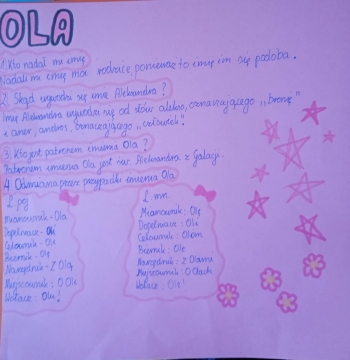 OLA
1. Kto nadał mi imię
Nadali mi imię moi rodzice, ponieważ to imię im się podoba.
2. Skąd wywodzi się imię Aleksandra?
Imię Aleksandra wywodzi się od słów alekso, oznaczającego „bronię"
i aner, andros, oznaczającego „człowiek".
3. Kto jest patronem imienia Ola?
Patronem imienia Ola jest św. Aleksandra z Galacji.
4. Odmiana przez przypadki imienia Ola
l. poj
Mianownik - Ola
Dopełniacz - Oli
Celownik - Oli
Biernik - Olę
Narzędnik - Z Olą
Miejscownik: O Oli
Wołacz: Olu!
l. mn.
Mianownik: Ole
Dopełniacz: Ol
Celownik: Olom
Biernik: Ole
Narzędnik: Z Olami
Miejscownik: O Olach
Wołacz: Ole!